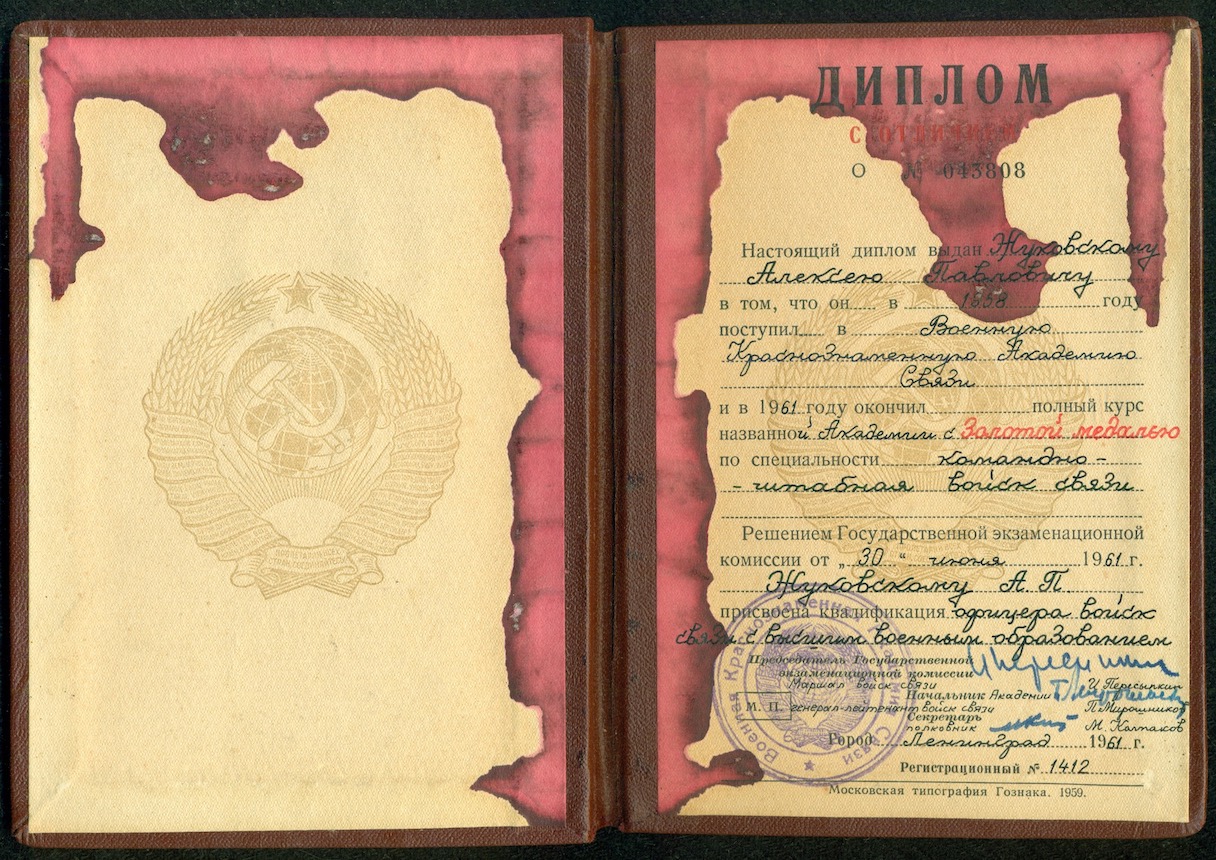 ДИПЛОМ
С ОТЛИЧИЕМ
О № 043808
Настоящий диплом выдан Жуковскому
Алексею Павловичу
в том, что он в 1958 году
поступил в Военную
Краснознаменную Академию
Связи
и в 1961 году окончил полный курс
названной Академии с Золотой медалью
по специальности командно-
-штабная войск связи
Решением Государственной экзаменационной
комиссии от „30“ июня 1961 г.
Жуковскому А. П.
присвоена квалификация офицера войск
связи с высшим военным образованием
Председатель Государственной
экзаменационной комиссии
Маршал войск связи И. Пересыпкин
Начальник Академии
М. П. генерал-лейтенант войск связи П. Мирошников
Секретарь
полковник М. Колпаков
Город Ленинград 1961 г.
Регистрационный № 1412
Московская типография Гознака. 1959.
Военная Краснознаменная Академия Связи